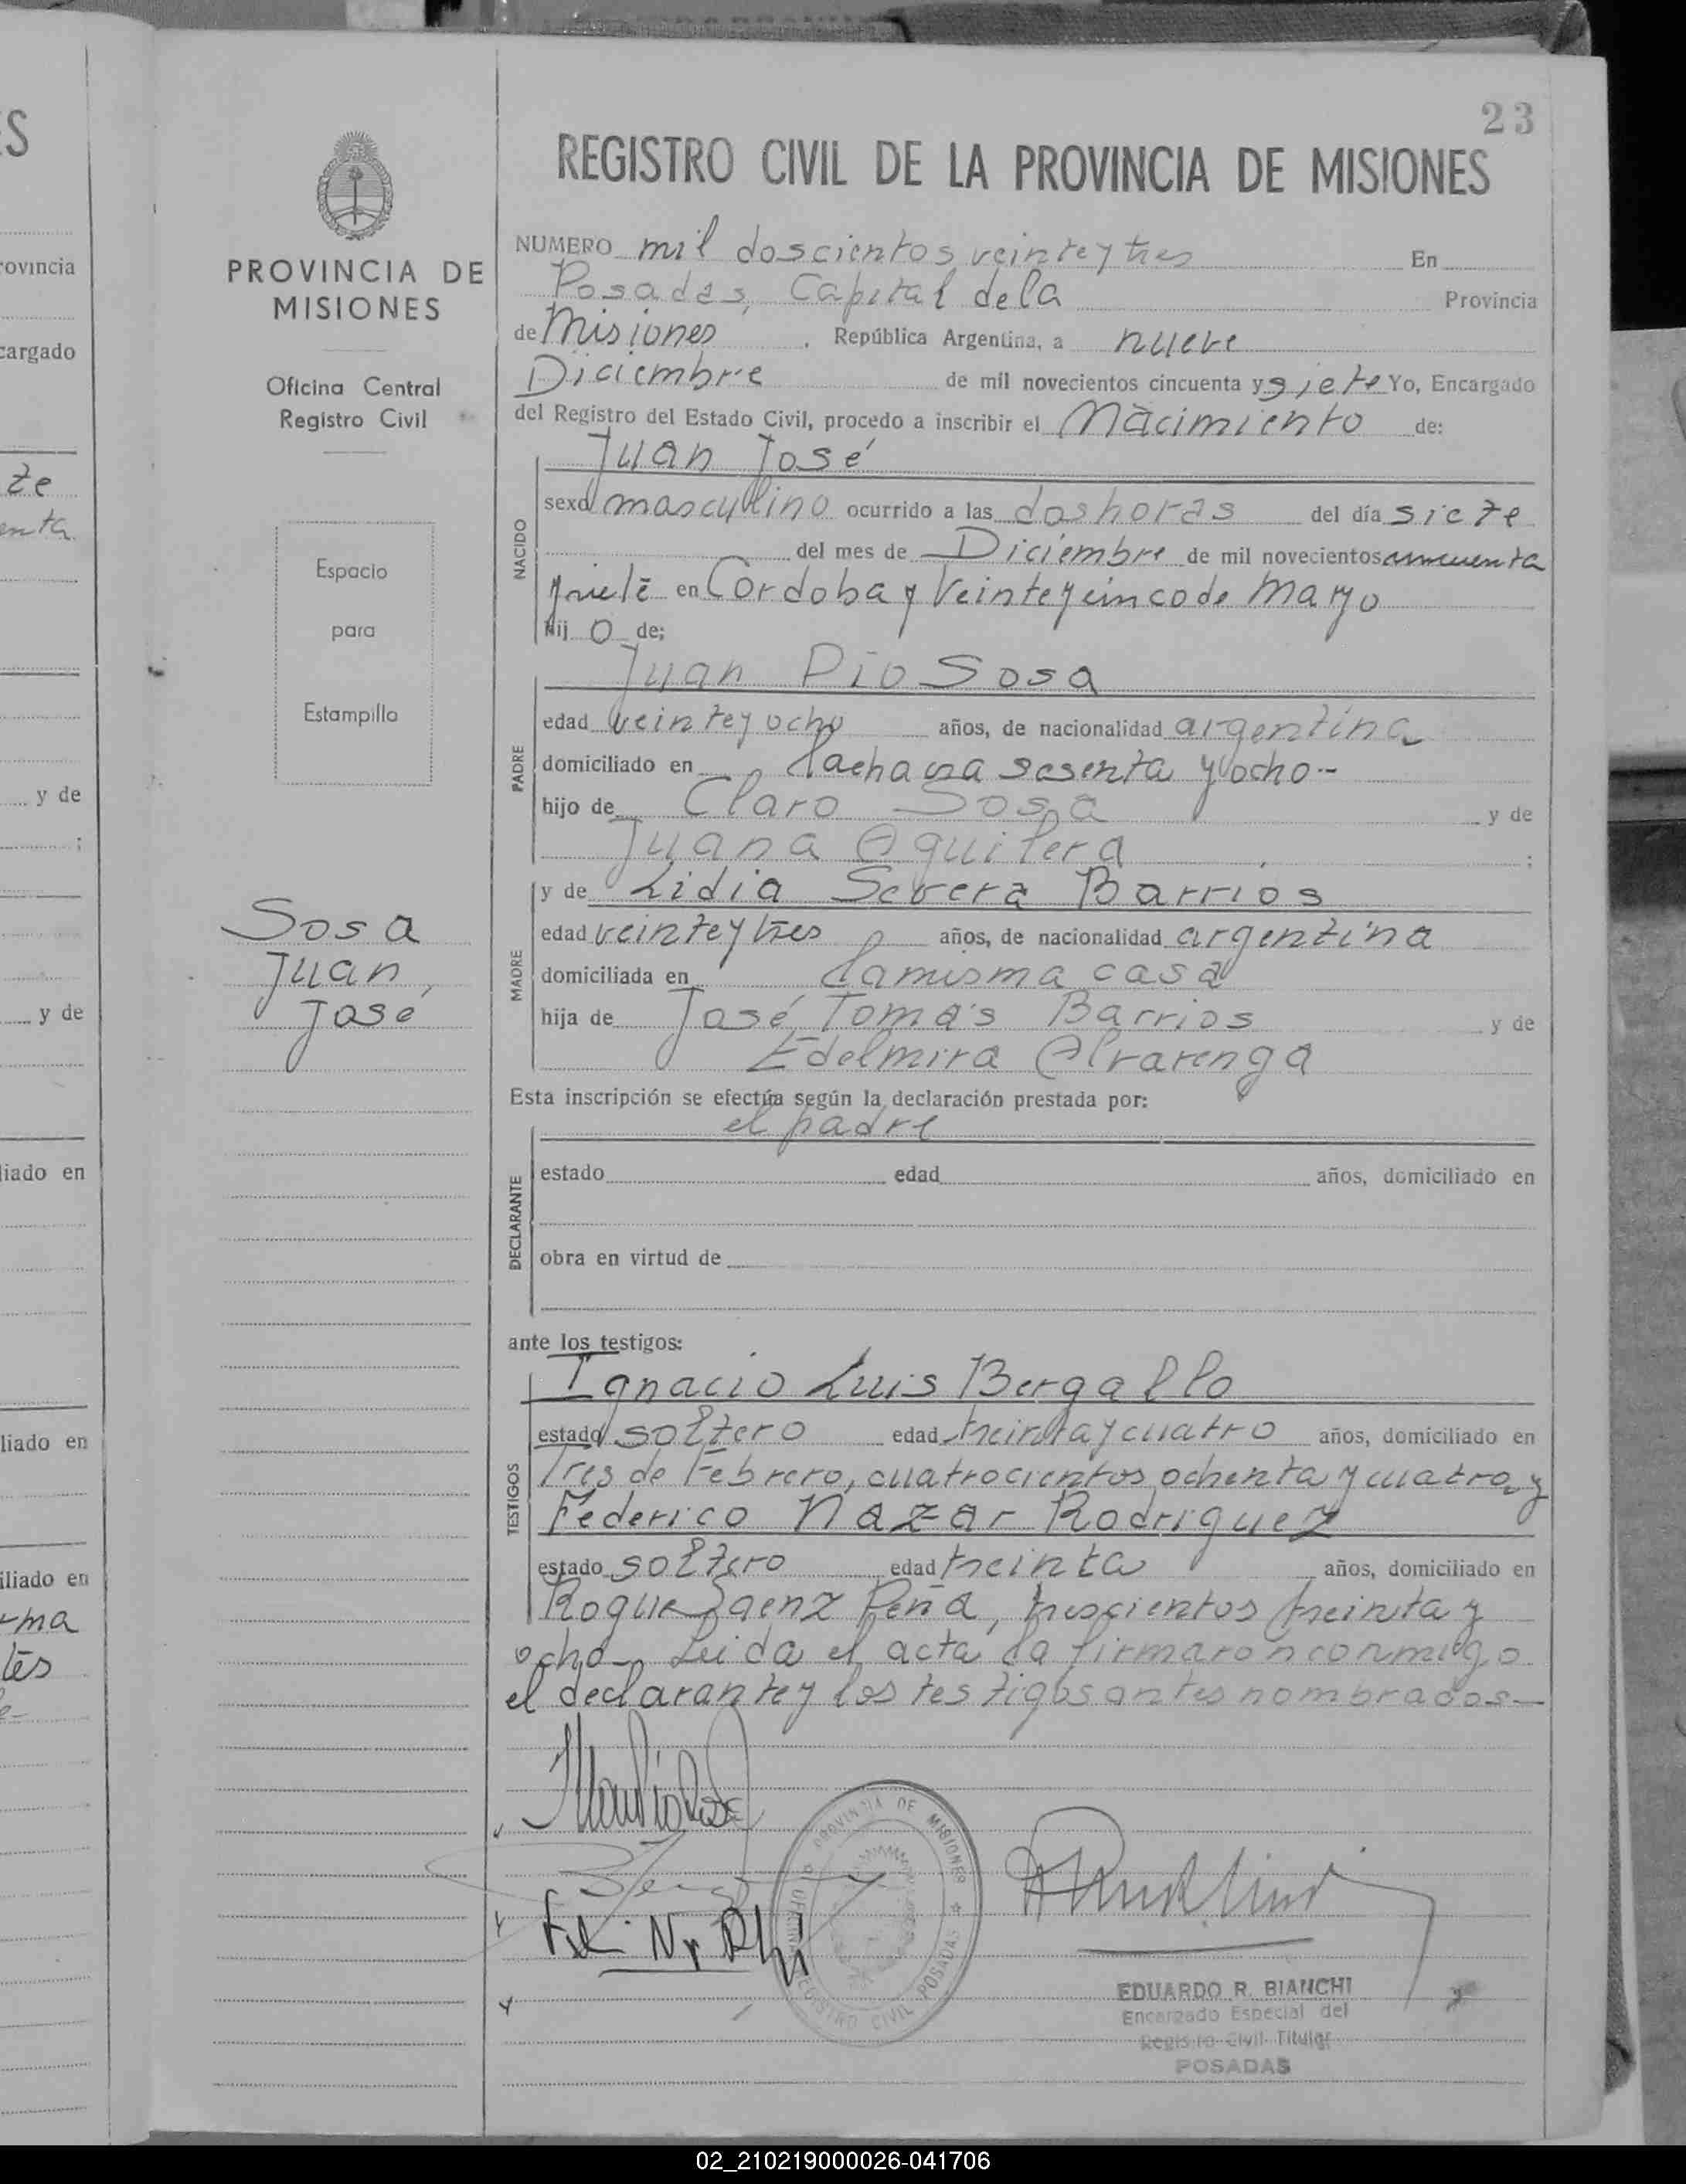 23
REGISTRO CIVIL DE LA PROVINCIA DE MISIONES
PROVINCIA DE
MISIONES
Oficina Central
Registro Civil
Espacio
para
Estampilla
Sosa
Juan
José
NUMERO mil doscientos veinte y tres En
Posadas, Capital de la Provincia
de Misiones, República Argentina, a nueve
Diciembre de mil novecientos cincuenta y siete Yo, Encargado
del Registro del Estado Civil, procedo a inscribir el Nacimiento de:
Juan José
NACIDO
sexo masculino ocurrido a las dos horas del día siete
del mes de Diciembre de mil novecientos cincuenta
y siete en Cordoba y Veinte y cinco de Mayo
Hijo de;
Juan Pio Sosa
PADRE
edad veinte y ocho años, de nacionalidad argentina
domiciliado en la chacra sesenta y ocho.-
hijo de Claro Sosa y de
Juana Aquilera ;
MADRE
y de Lidia Severa Barrios
edad veinte y tres años, de nacionalidad argentina
domiciliada en la misma casa
hija de José Tomás Barrios y de
Edelmira Alvarenga
Esta inscripción se efectúa según la declaración prestada por:
el padre
DECLARANTE
estado edad años, domiciliado en
obra en virtud de
ante los testigos:
Ignacio Luis Bergallo
TESTIGOS
estado soltero edad treinta y cuatro años, domiciliado en
Tres de Febrero, cuatrocientos ochenta y cuatro, y
Federico Nazar Rodriguez
estado soltero edad treinta años, domiciliado en
Roque Saenz Peña, trescientos treinta y
ocho.- Leida el acta la firmaron conmigo
el declarante y los testigos antes nombrados.-
PROVINCIA DE MISIONES
REGISTRO CIVIL POSADAS
EDUARDO R. BIANCHI
Encargado Especial del
Registro Civil Titular
POSADAS
02_210219000026-041706